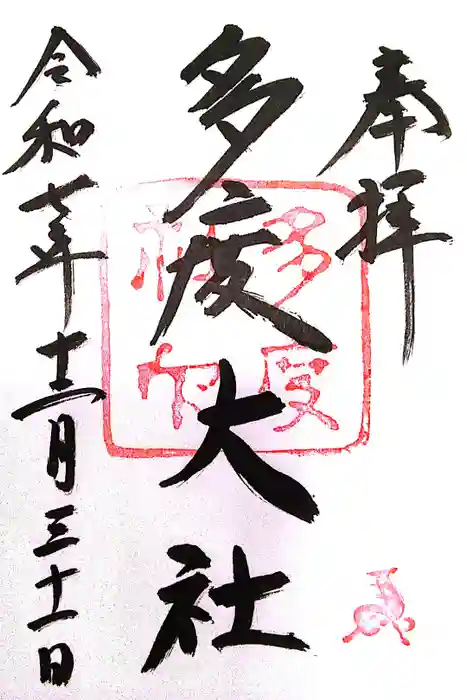 奉拝
多度大社
令和七年十二月三十一日
多度
神社